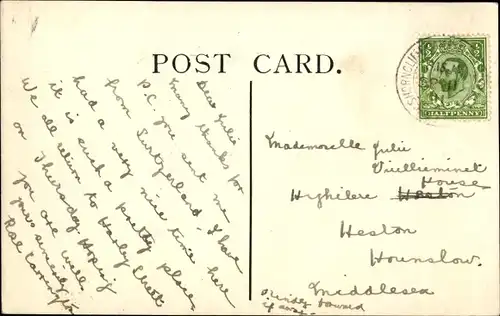 POST CARD.
Dear Julie
Many thanks for
P.C. you sent me
from Switzerland. I have
had a very nice time here
it is such a pretty place.
We all return to Harley Street
on Thursday. Hoping
you are well
yours sincerely
Rae
Mademoiselle Julie
Vuilliemenet
House
Highclere Heston
Heston
Hounslow.
Middlesex
Kindly forward
if away.
SHORNCLIFFE
HALFPENNY